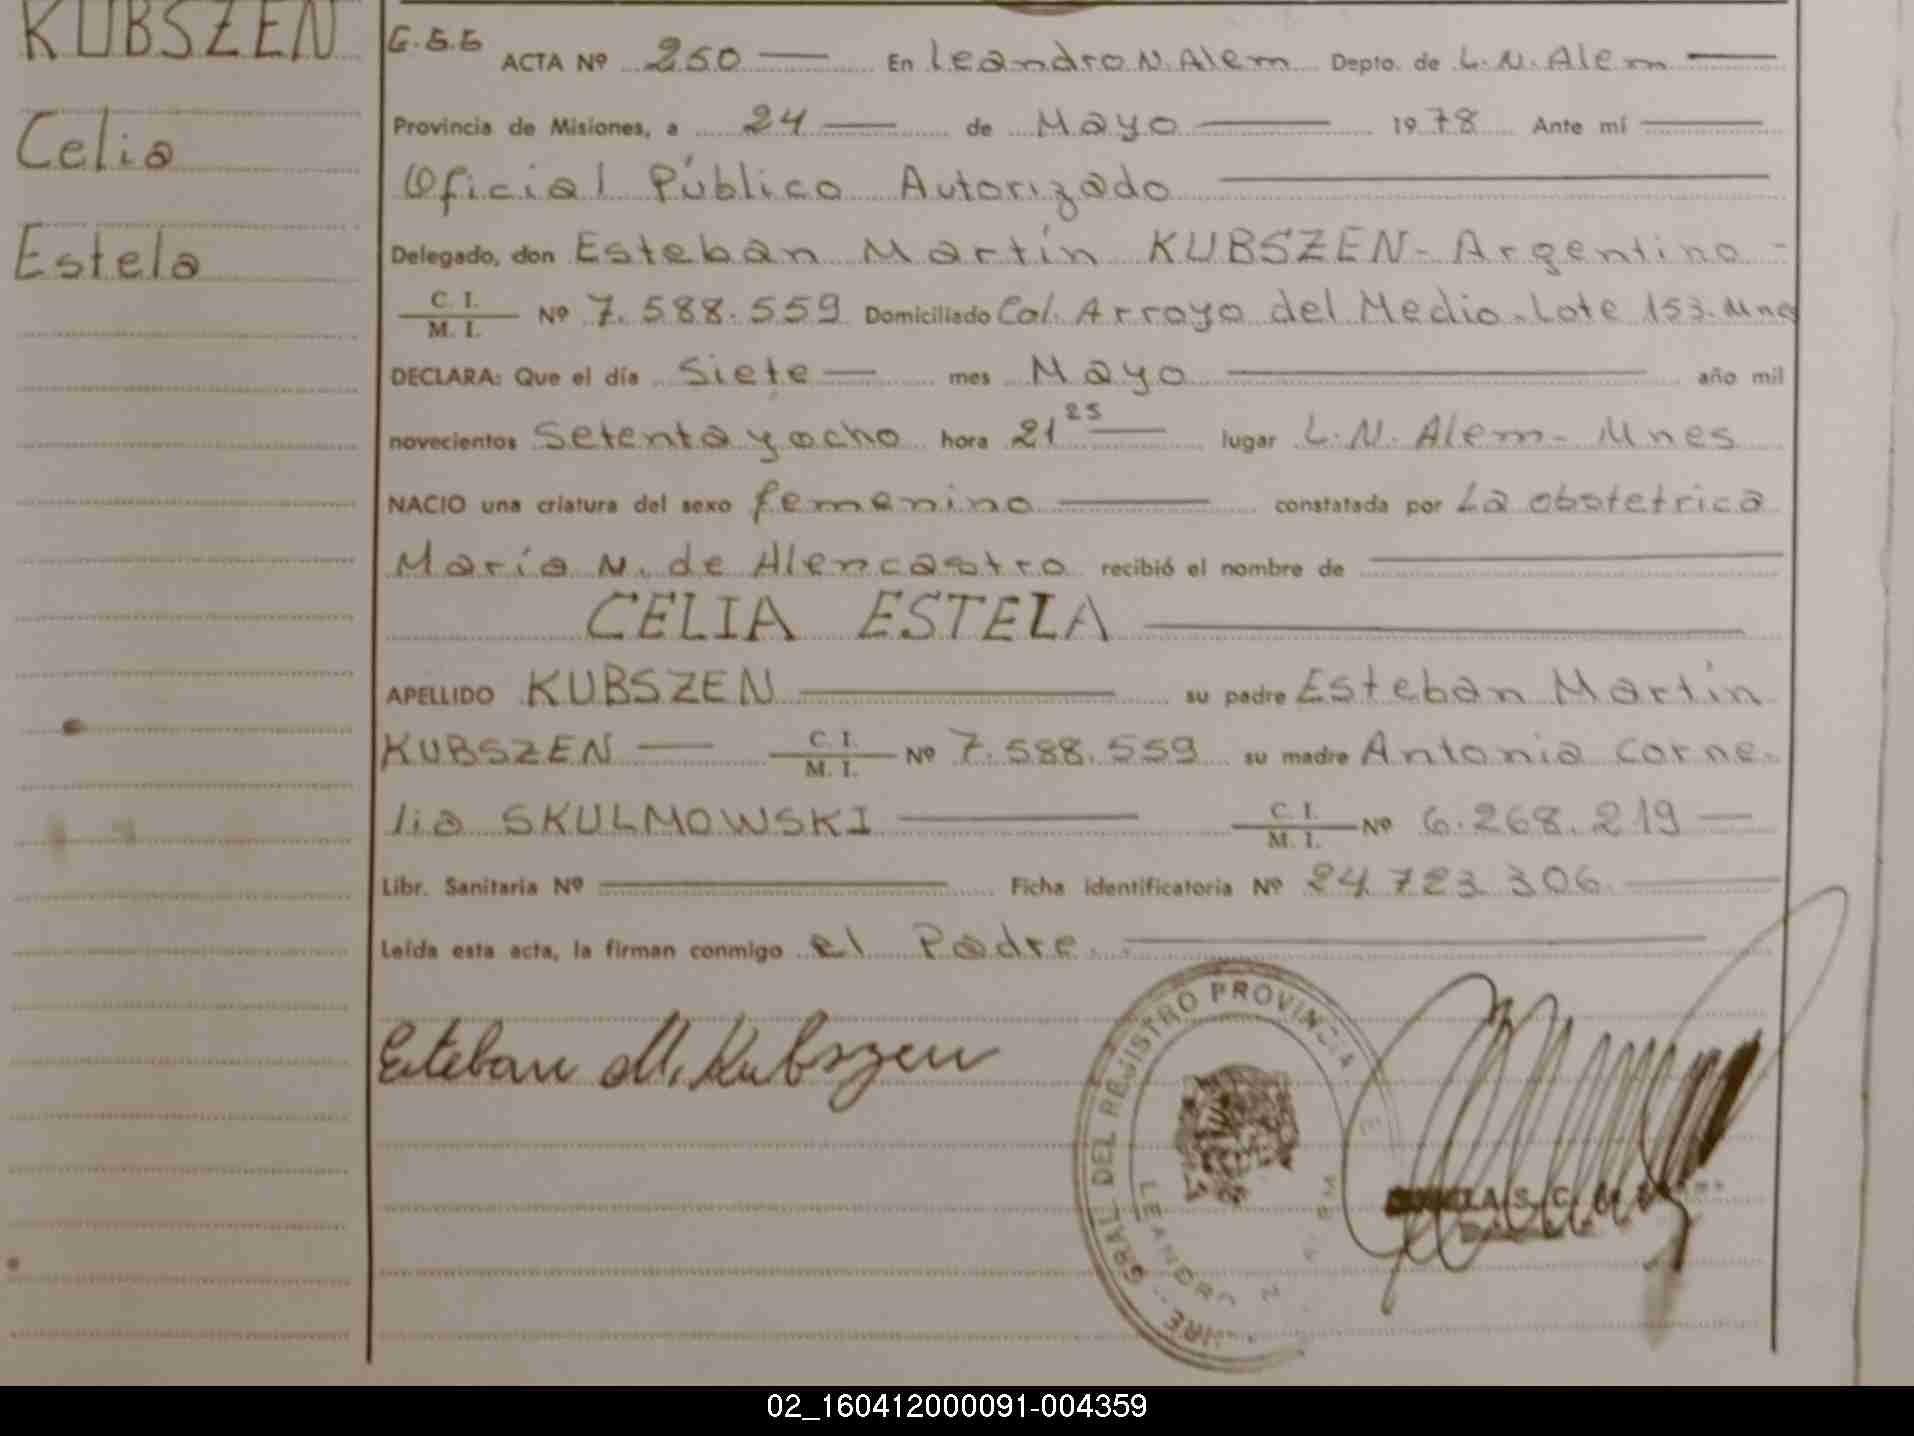 KUBSZEN
Celia
Estela
G.S.S
ACTA Nº 250 En Leandro N. Alem Depto. de L. N. Alem
Provincia de Misiones, a 24 de Mayo 1978 Ante mí
Oficial Público Autorizado
Delegado, don Esteban Martín KUBSZEN - Argentino -
C. I.
M. I. Nº 7.588.559 Domiciliado Col. Arroyo del Medio - Lote 153. Mnes
DECLARA: Que el día Siete mes Mayo año mil
novecientos Setenta y ocho hora 21 25 lugar L. N. Alem - Mnes
NACIO una criatura del sexo femenino constatada por La obstetrica
María N. de Alencastro recibió el nombre de
CELIA ESTELA
APELLIDO KUBSZEN su padre Esteban Martín
KUBSZEN C. I. M. I. Nº 7.588.559 su madre Antonia Corne-
lia SKULMOWSKI C. I. M. I. Nº 6.268.219
Libr. Sanitaria Nº Ficha identificatoria Nº 24.723.306.
Leída esta acta, la firman conmigo el Padre.
Esteban M. Kubszen
GRAL. DEL REGISTRO PROVINCIA
LEANDRO N. ALEM
02_160412000091-004359